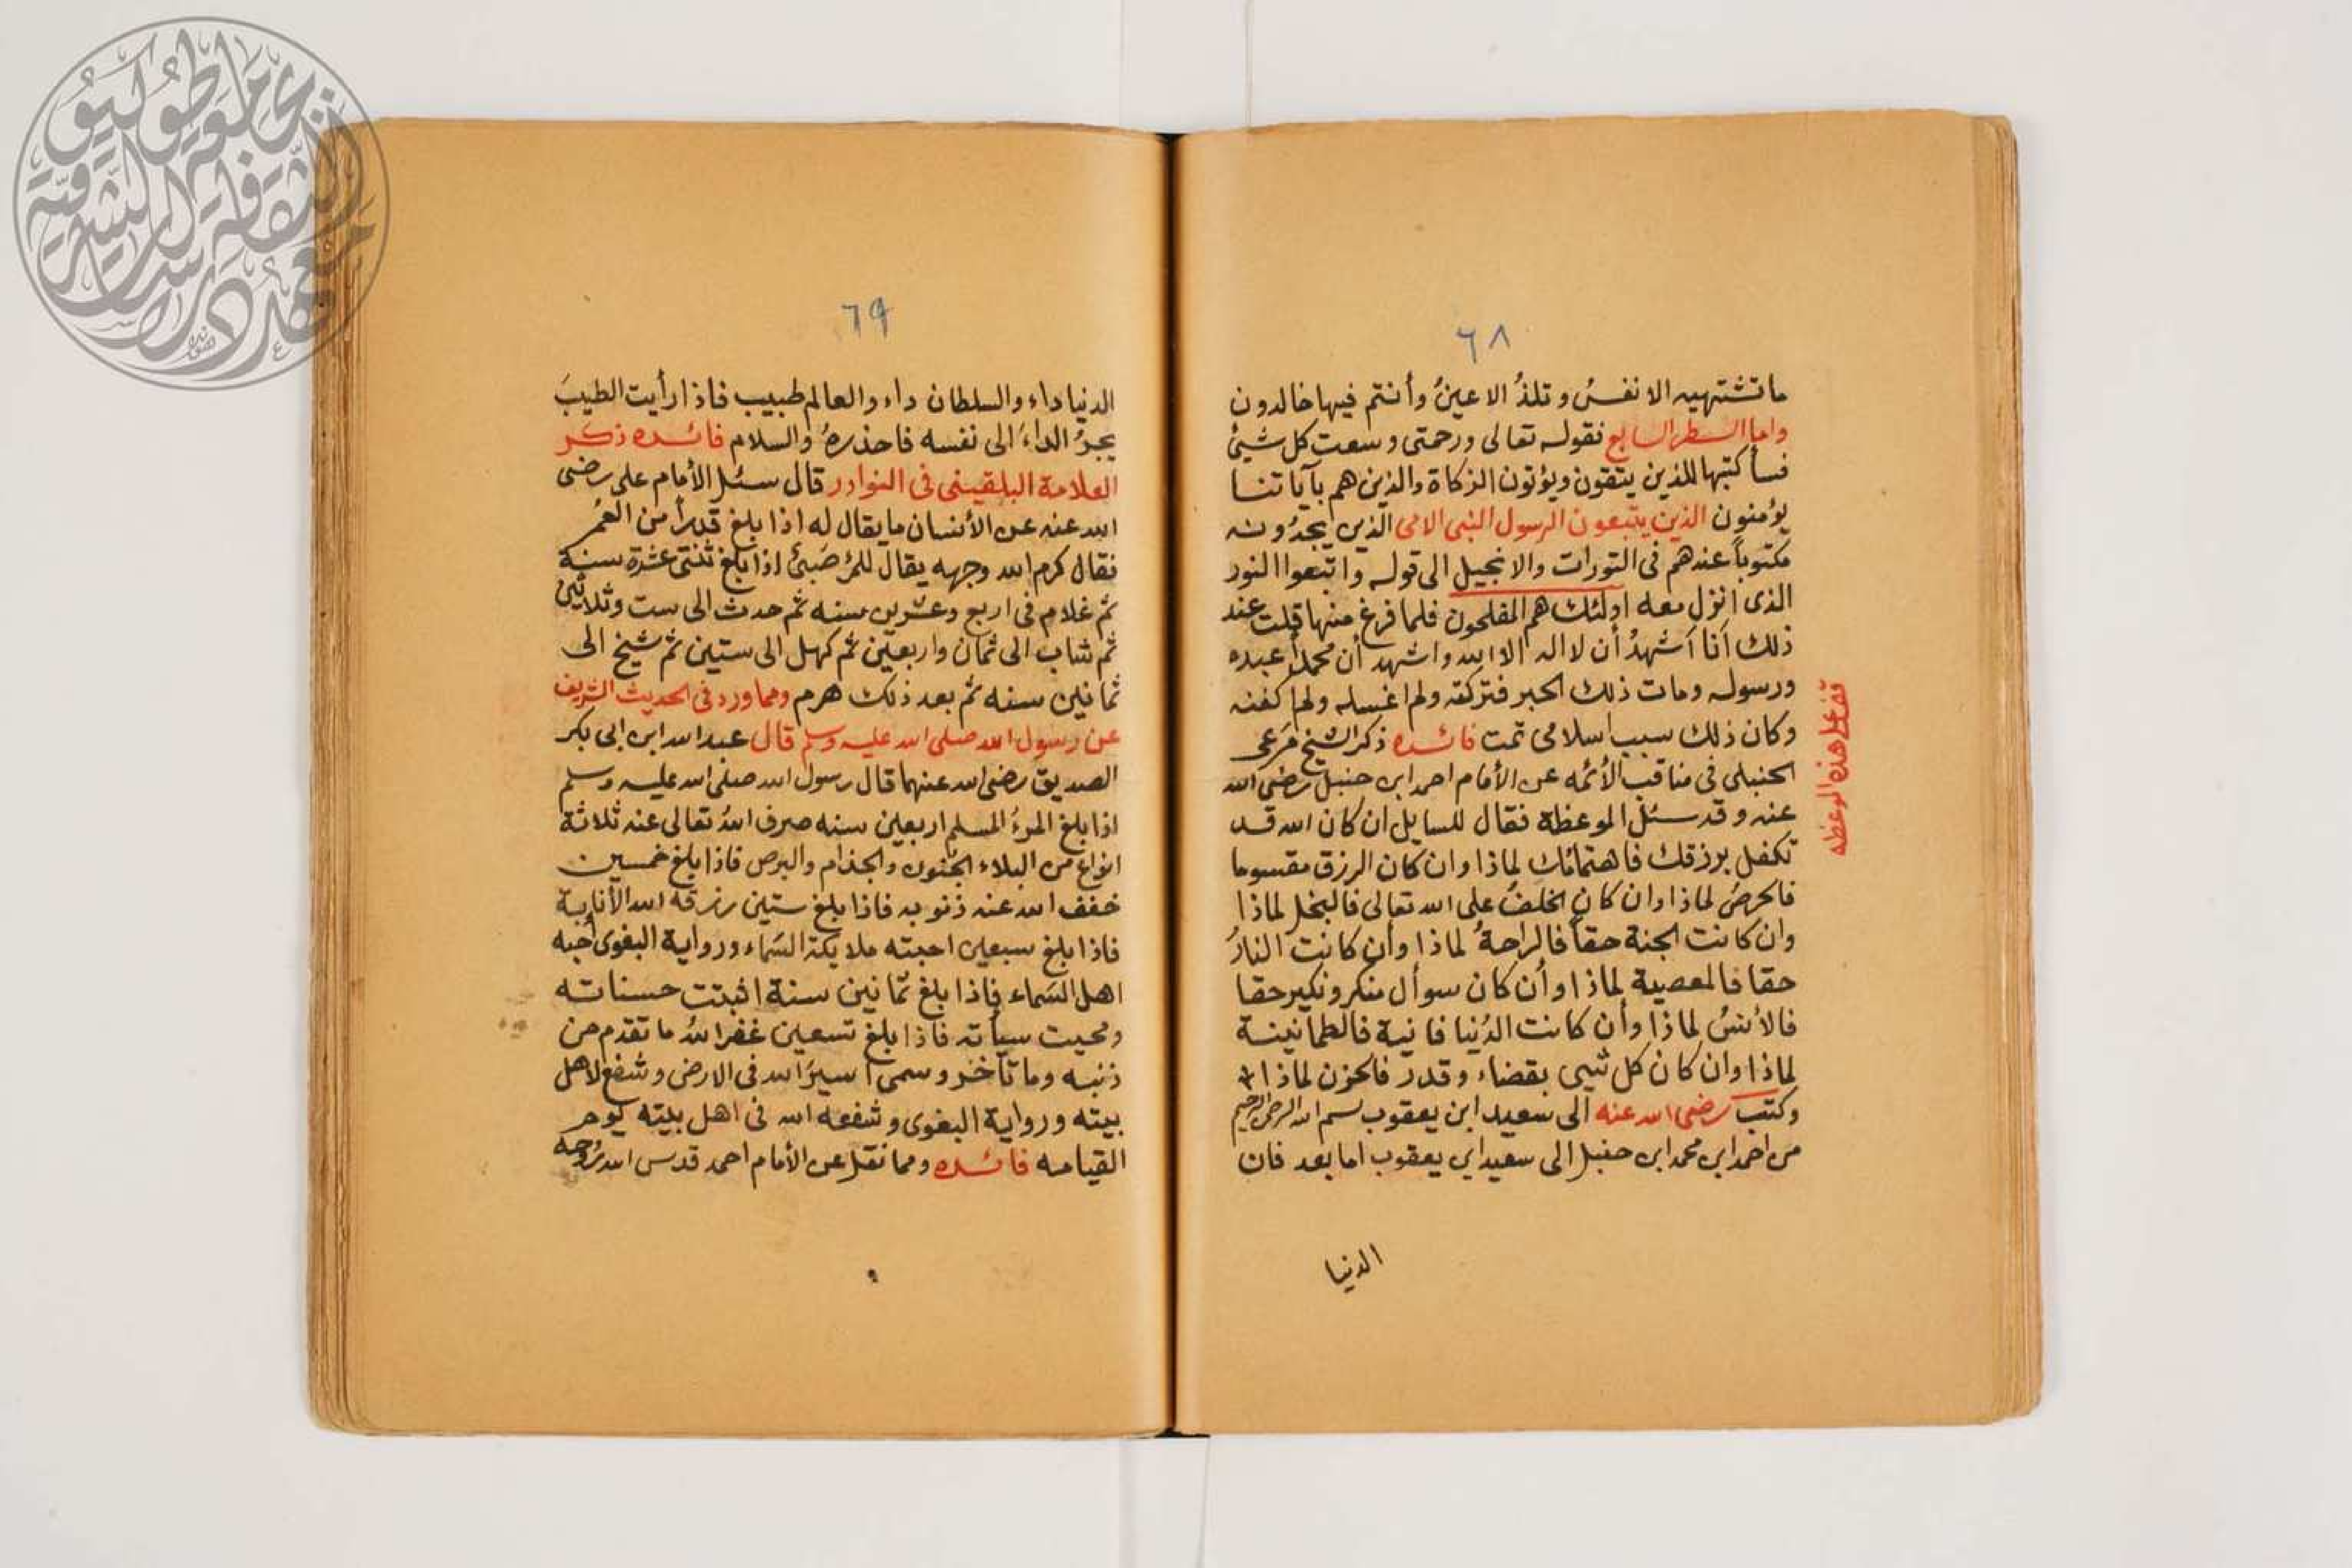 ٦٨
ما تشتهيه الانفسُ وتلذُ الاعينُ وأنتم فيها خالدون
واما السطر السابع فقوله تعالى ورحمتى وسعت كل شيئ
فسأكتبها للذين يتقون ويؤتون الزكاة والذين هم بآياتنا
يؤمنون الذين يتبعون الرسول النبى الامى الذى يجدُونه
مكتوباً عندهم فى التورات والانجيل الى قوله واتبعوا النور
الذى انزل معه اولئك هم المفلحون فلما فرغ منها قلت عند
ذلك أنا أشهدُ أن لا اله الا الله واشهد أن محمداً عبده
ورسوله ومات ذلك الحبر فتركته ولم اغسله ولم اكفنه
وكان ذلك سبب اسلامى تمت فائده ذكر الشيخ مَرعى
الحنبلى فى مناقب الأئمه عن الأمام احمد ابن حنبل رضى الله
عنه وقد سئل الموعظة فقال للسايل ان كان الله قد
تكفل برزقك فاهتمامُك لماذا وان كان الرزق مقسوما
فالحرصُ لماذا وان كان الخلفُ على الله تعالى فالبخل لماذا
وان كانت الجنة حقاً فالراحةُ لماذا وأن كانت النارُ
حقا فالمعصية لماذا وأن كان سوأل منكر ونكير حقا
فالأنسُ لماذا وأن كانت الدُنيا فانية فالطمأنينة
لماذا وان كان كل شيى بقضاء وقدر فالحزن لماذا
وكتب رضى الله عنه الى سعيد ابن يعقوب بسم الله الرحمن الرحيم
من احمد ابن محمد ابن حنبل الى سعيد ابن يعقوب اما بعد فان
الدنيا
قف على هذه الموعظه
٦٩
الدنيا داء والسلطان داء والعالم طبيب فاذا رأيت الطبيبَ
يجرُ الداءَ الى نفسه فاحذرهُ والسلام فائده ذكر
العلامة البلقينى فى النوادر قال سئل الأمام على رضى
الله عنه عن الأنسان ما يقال له اذا بلغ قدراً من العمُر
فقال كرم الله وجهه يقال للمرْ صَبىُ اذا بلغ ثنتى عشرة سنة
ثم غلام فى اربع وعشرين سنه ثم حدث الى ست وثلاثين
ثم شاب الى ثمان واربعين ثم كهل الى ستين ثم شيخ الى
ثمانين سنه ثم بعد ذلك هرم ومما ورد فى الحديث الشريف
عن رسول الله صلى الله عليه وسلم قال عبد الله ابن ابى بكر
الصديق رضى الله عنهما قال رسول الله صلى الله عليه وسلم
اذا بلغ المرءُ المسلم اربعين سنه صرف اللهُ تعالى عنه ثلاثة
انواع من البلاء الجنون والجذام والبرص فاذا بلغ خمسين
خفف الله عنه ذنوبه فاذا بلغ ستين رزقه الله الأنابة
فاذا بلغ سبعين احبته ملايكة السَماء ورواية البغوى أحبه
اهل السَماء فاذا بلغ ثمانين سنة اثبتت حسناته
ومحيت سيأته فاذا بلغ تسعين غفر اللهُ ما تقدم من
ذنبه وما تأخر وسمى اسيرَ الله فى الارض وشفع لاهل
بيته ورواية البغوى وشفعه الله فى اهل بيته يوم
القيامه فائده ومما نقل عن الأمام احمد قدس الله رُوحه